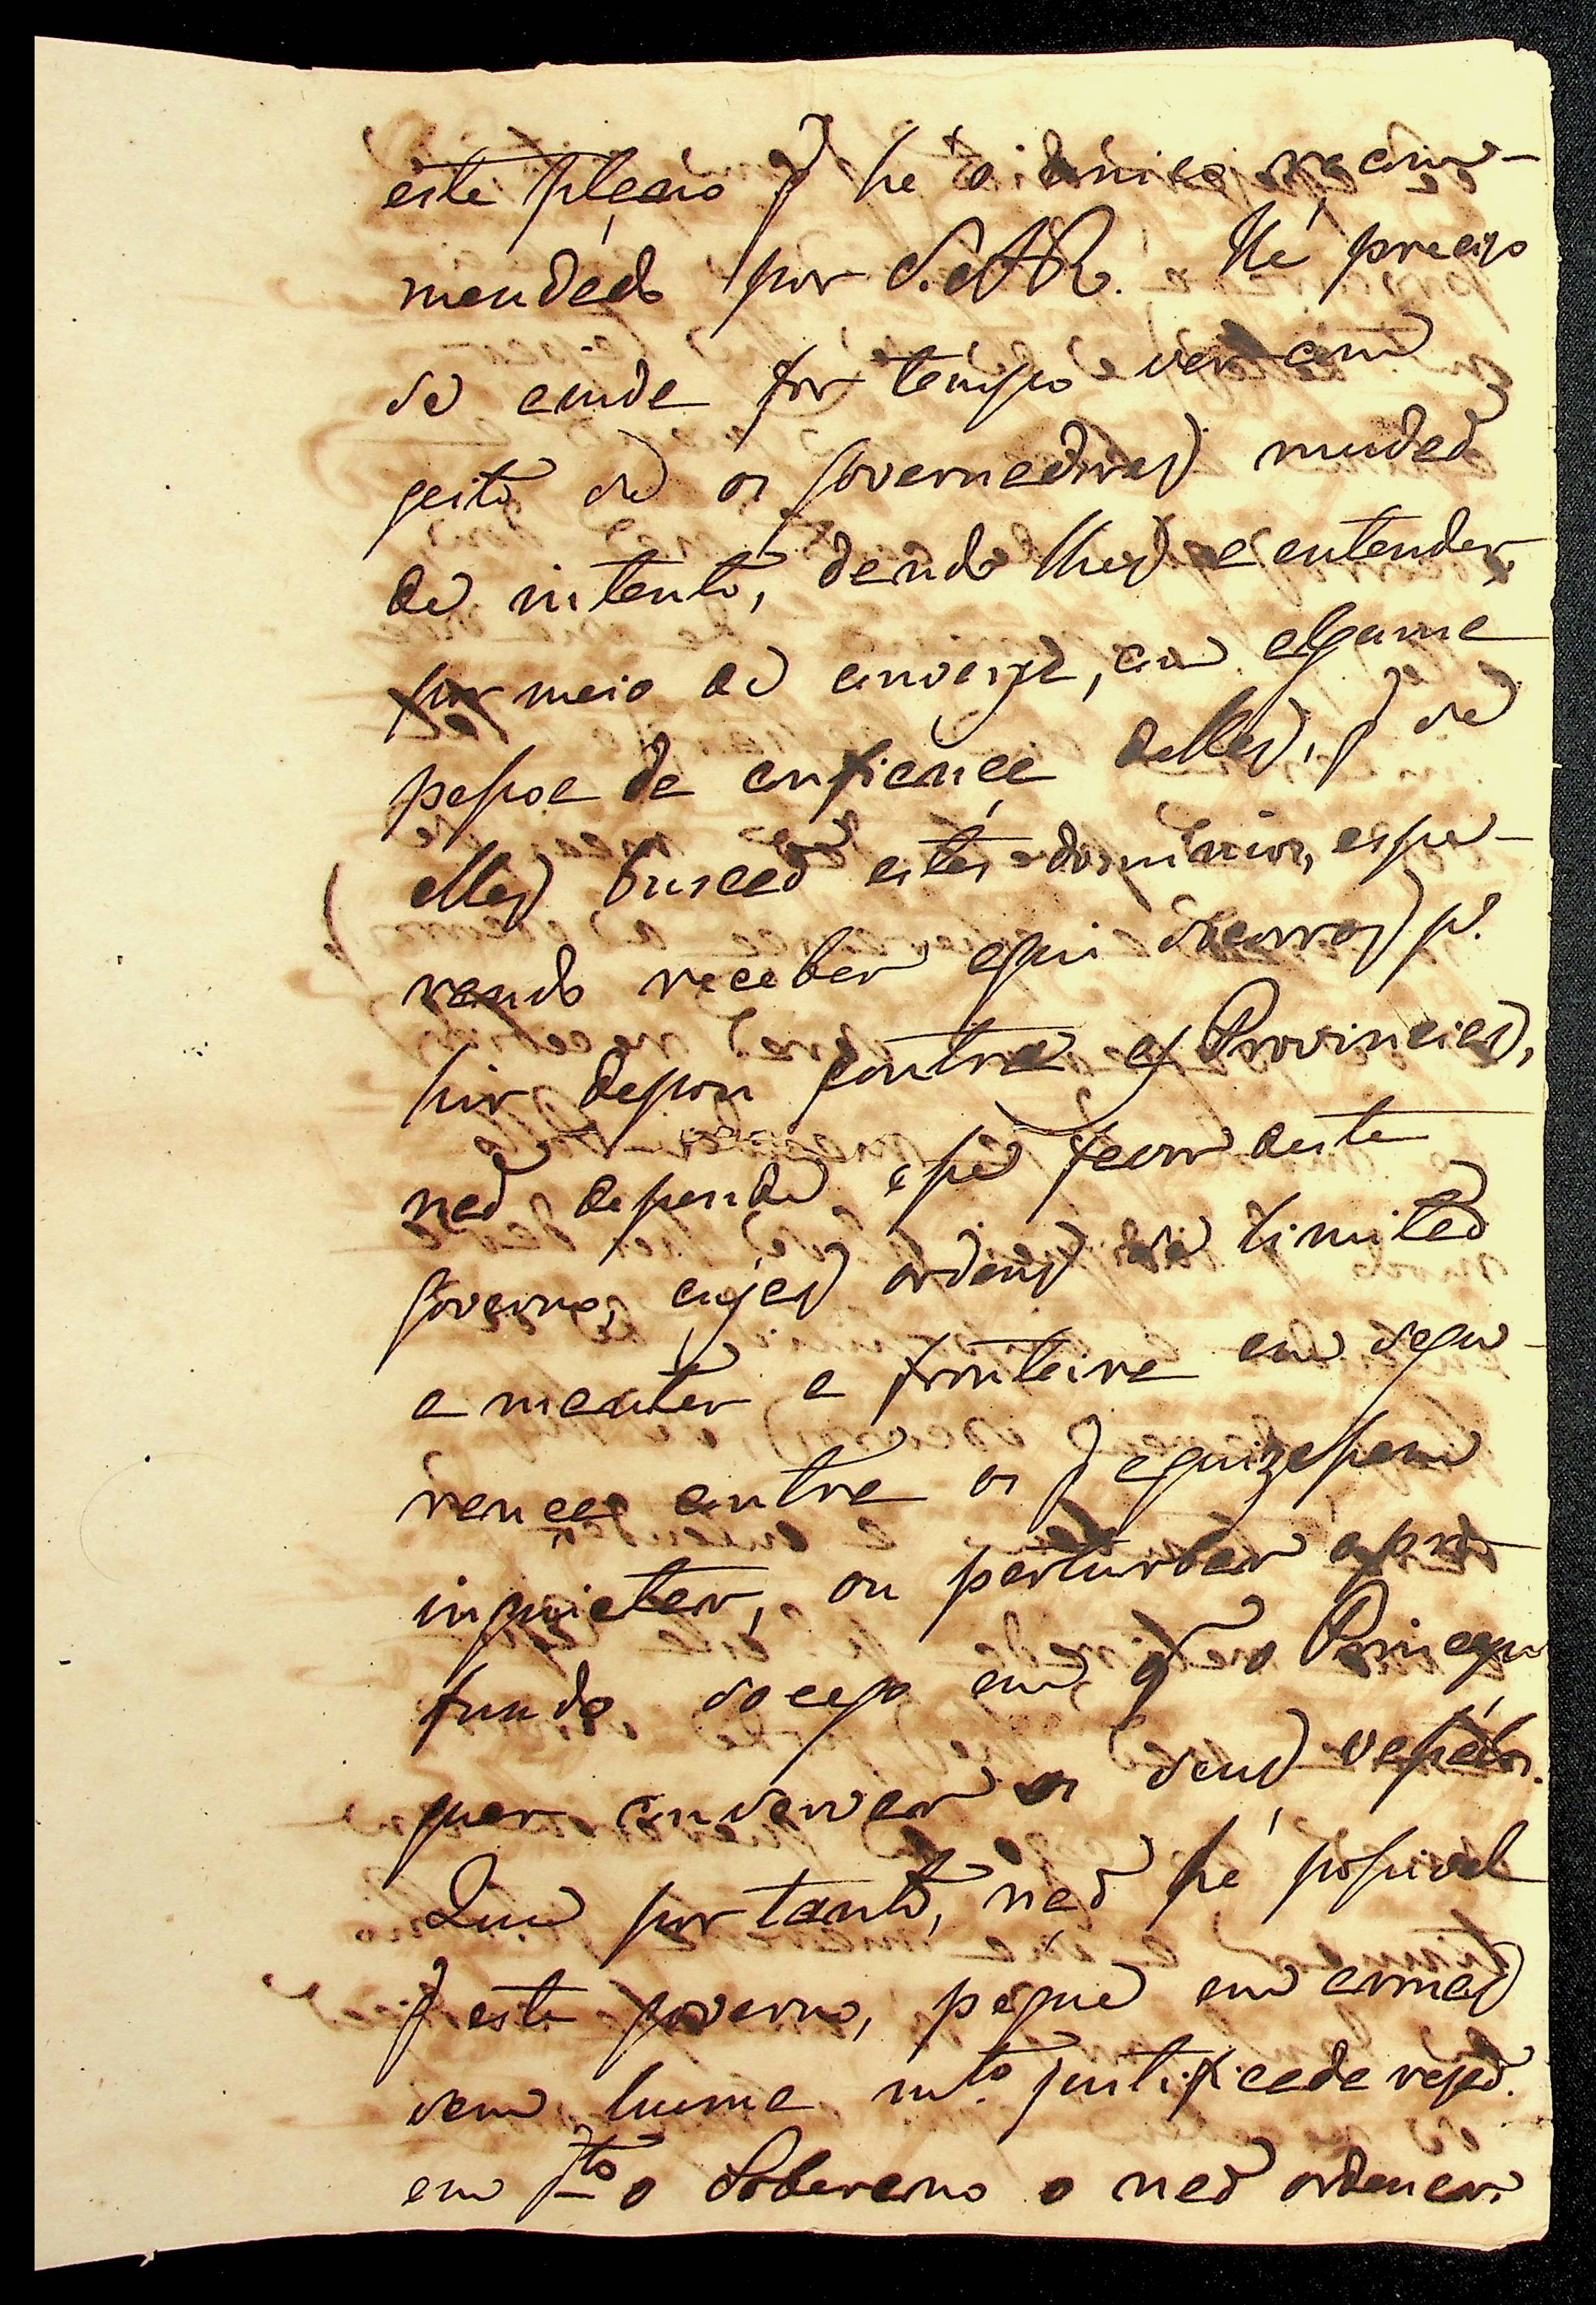 este plano q̃ he o unico recom-
mendado por S.A.R. He preciso
se ainda for tempo ver com
geito se os governadores mudaõ
de intento, dando lhes a entender
por meio de conversa, com alguma
pessoa de confiança delles, q̃ se
elles buscaõ estes dominios, espe-
rando receber aqui socorros p.ª
hir depois contra as Provincias,
naõ depende esse favor deste
governo, cujas ordens se limitaõ
a manter a fronteira em segu-
rança contra os q̃ a quizessem
inquietar, ou perturbar o pro-
fundo socego em q̃ o Principe
quer conservar os seus vassalos.
Que por tanto, naõ he possivel
q̃ este governo, pegue em armas
sem huma m.to justificada rasaõ.
em q.to o Soberano o naõ ordenar.